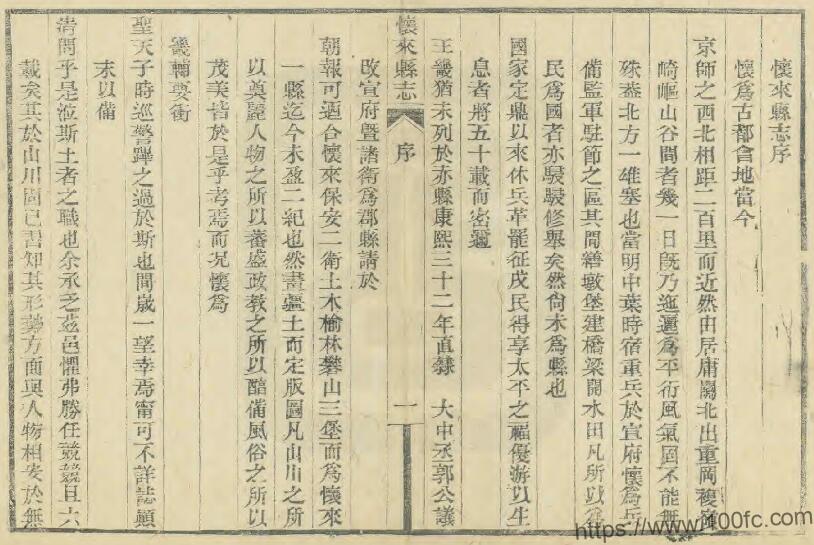 懷來縣志序
懷爲古都會地當今
京師之西北相距二百里而近然由居庸關北出重岡複嶺
崎嶇山谷間者幾一日旣乃迤邐爲平衍風氣固不能無
殊葢北方一雄塞也當明中葉時宿重兵於宣府懷爲兵
備監軍駐節之區其間繕墩堡建橋梁開水田凡所以
民爲國者亦駸駸修舉矣然尙未爲縣也
國家定鼎以來休兵革罷征戌民得享太平之福優游以生
息者將五十載而密邇
王畿猶未列於赤縣康熙三十二年直隸 大中丞郭公議
懷來縣志 序 一
改宣府曁諸衛爲郡縣請於
朝報可迺合懷來保安二衛土木榆林礬山三堡而爲懷來
一縣迄今未盈二紀也然畫疆土而定版圖凡山川之所
以奠麗人物之所以蕃盛政敎之所以備風俗之所以
茂美皆於是乎考焉而况懷爲
畿輔要衝
聖天子時巡警蹕之過於斯也間歲一望幸焉甯可不詳誌顚
末以備
淸問乎是泣斯土者之職也余承乏茲邑懼弗勝任兢兢且六
載矣其於山川固已書知其形勢方面與人物相安於無
https://www.f100fc.com